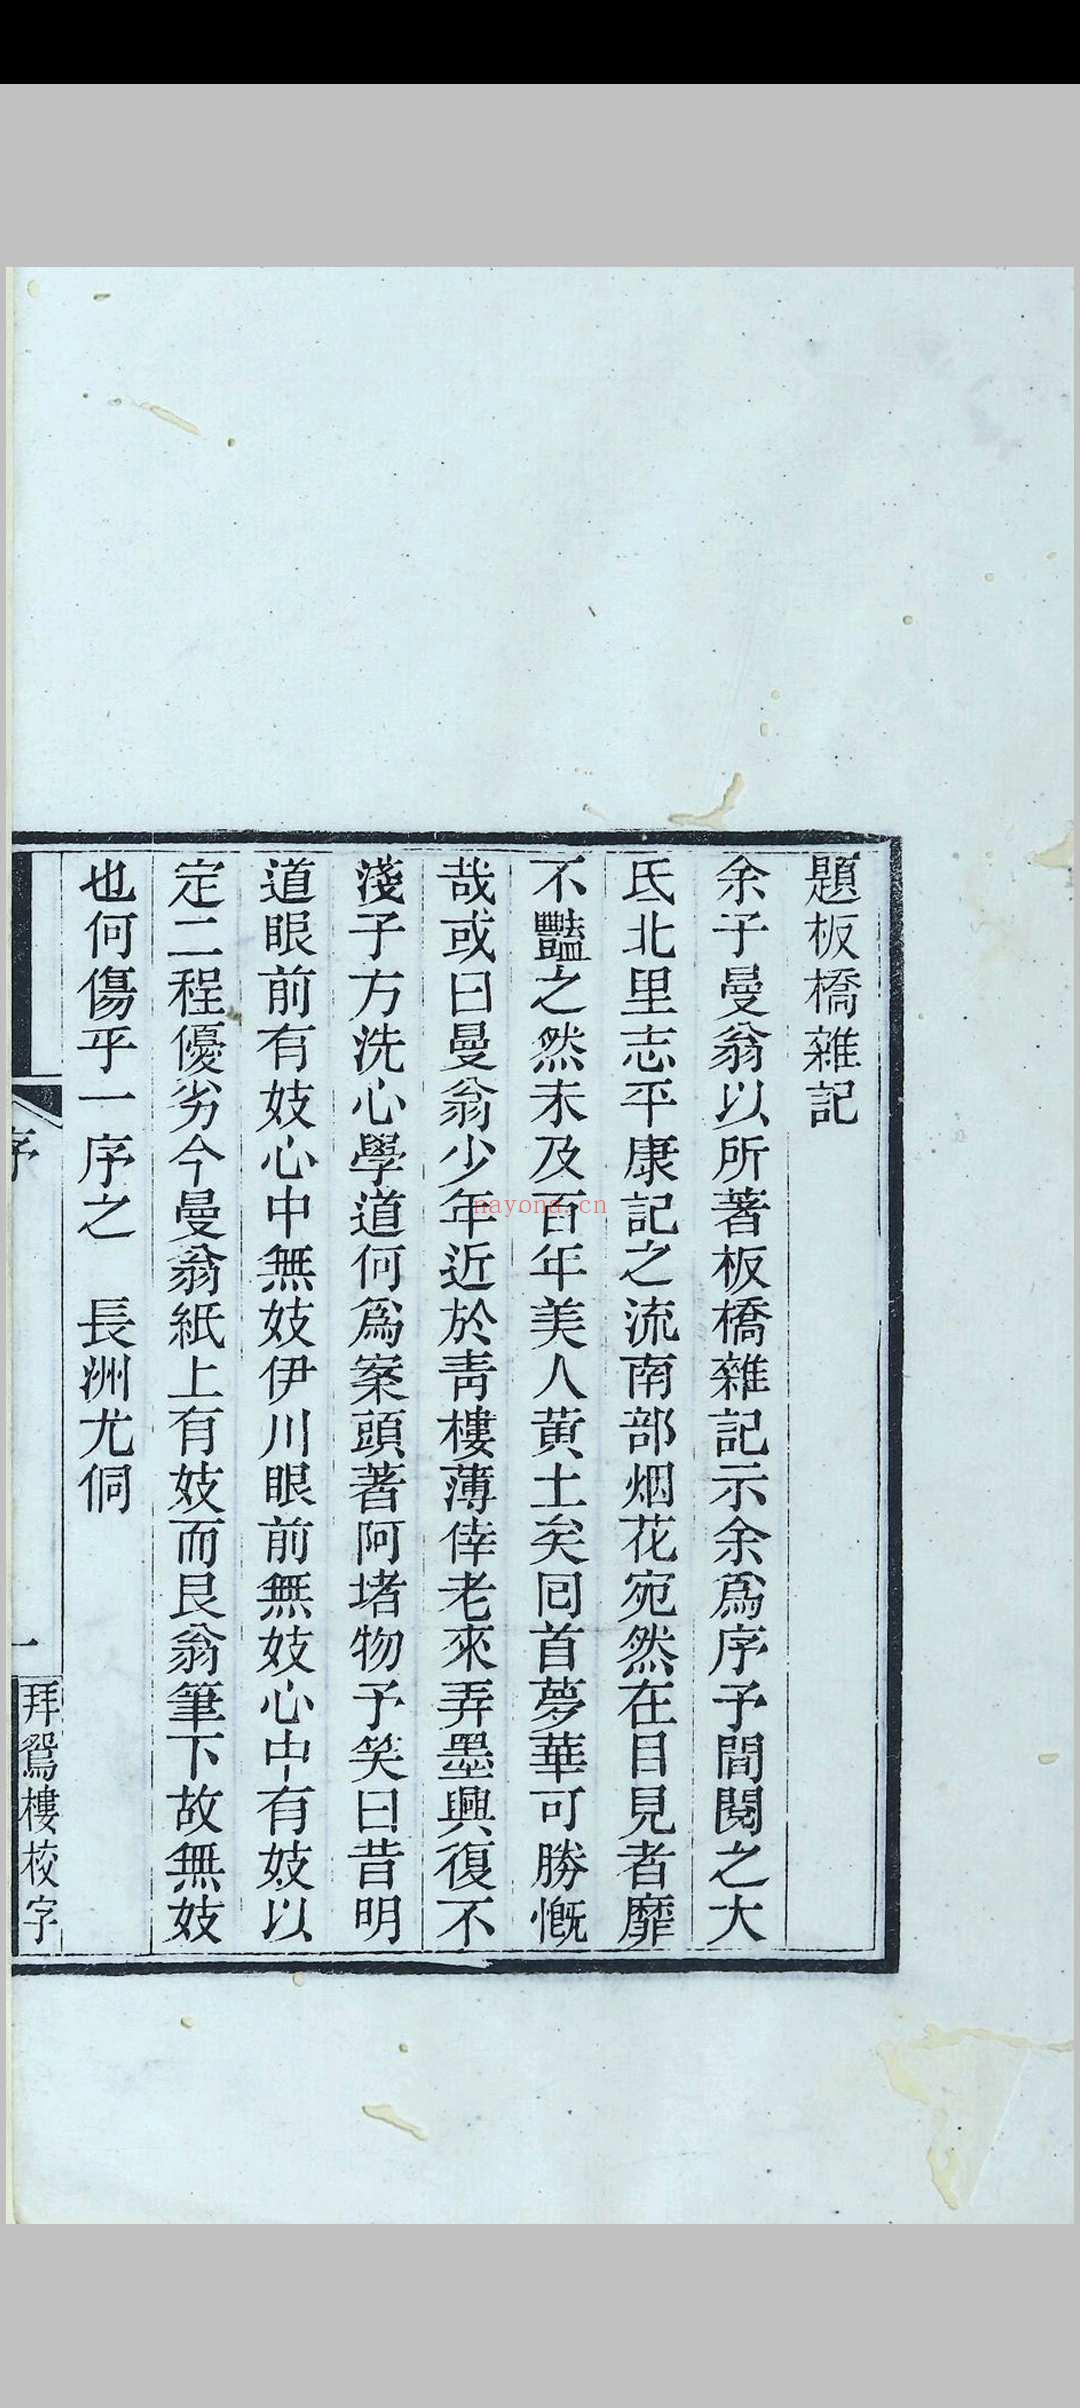 題板橋雜記
余子曼翁以所著板橋雜記示余爲序予間閱之大
氐北里志平康記之流南部烟花宛然在目見者靡
不豔之然未及百年美人黃土矣囘首夢華可勝慨
哉或曰曼翁少年近於青樓薄倖老來弄墨興復不
淺子方洗心學道何爲案頭著阿堵物予笑曰昔明
道眼前有妓心中無妓伊川眼前無妓心中有妓以
定二程優劣今曼翁紙上有妓而艮翁筆下故無妓
也何傷乎一序之　長洲尤侗
序
一
拜鴛樓校字
nayona.cn